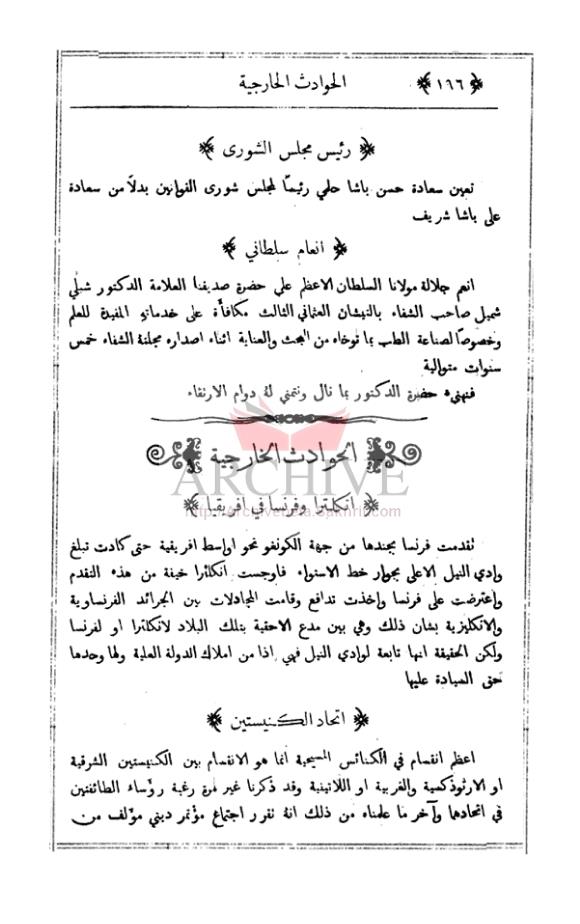 ﴿ ١٦٦ ﴾ الحوادث الخارجية
﴿ رئيس مجلس الشورى ﴾
تعين سعادة حسن باشا حلمي رئيسًا لمجلس شورى القوانين بدلًا من سعادة
على باشا شريف
﴿ انعام سلطاني ﴾
انعم جلالة مولانا السلطان الاعظم على حضرة صديقنا العلامة الدكتور شبلي
شميل صاحب الشفاء بالنيشان العثماني الثالث مكافأة على خدماتهِ المفيدة للعلم
وخصوصًا لصناعة الطب بما توخاه من البحث والعناية اثناء اصداره مجلتهُ الشفاء خمس
سنوات متوالية
فنهنيءُ حضرة الدكتور بما نال ونتمنى لهُ دوام الارتقاء
الحوادث الخارجية
ARCHIVE
﴿ انكلترا وفرنسا في افريقيا ﴾
http://Archivebeta.Sakhrit.com
تقدمت فرنسا بجندها من جهة الكونغو نحو اواسط افريقية حتى كادت تبلغ
وادي النيل الاعلى بجوار خط الاستواء فاوجست انكلترا خيفة من هذه التقدم
واعترضت على فرنسا واخذت تدافع وقامت المجادلات بين الجرائد الفرنساوية
والانكليزية بشان ذلك وهي بين مدع الاحقية بتلك البلاد لانكلترا او لفرنسا
ولكن الحقيقة انها تابعة لوادي النيل فهي اذا من املاك الدولة العلية ولها وحدها
حق السيادة عليها
﴿ اتحاد الكنيستين ﴾
اعظم انقسام في الكنائس المسيحية انما هو الانقسام بين الكنيستين الشرقية
او الارثوذكسية والغربية او اللاتينية وقد ذكرنا غير مرة رغبة رؤساء الطائفتين
في اتحادها وآخر ما علمناه من ذلك انهُ تقرر اجتماع مؤتمر ديني مؤلف من